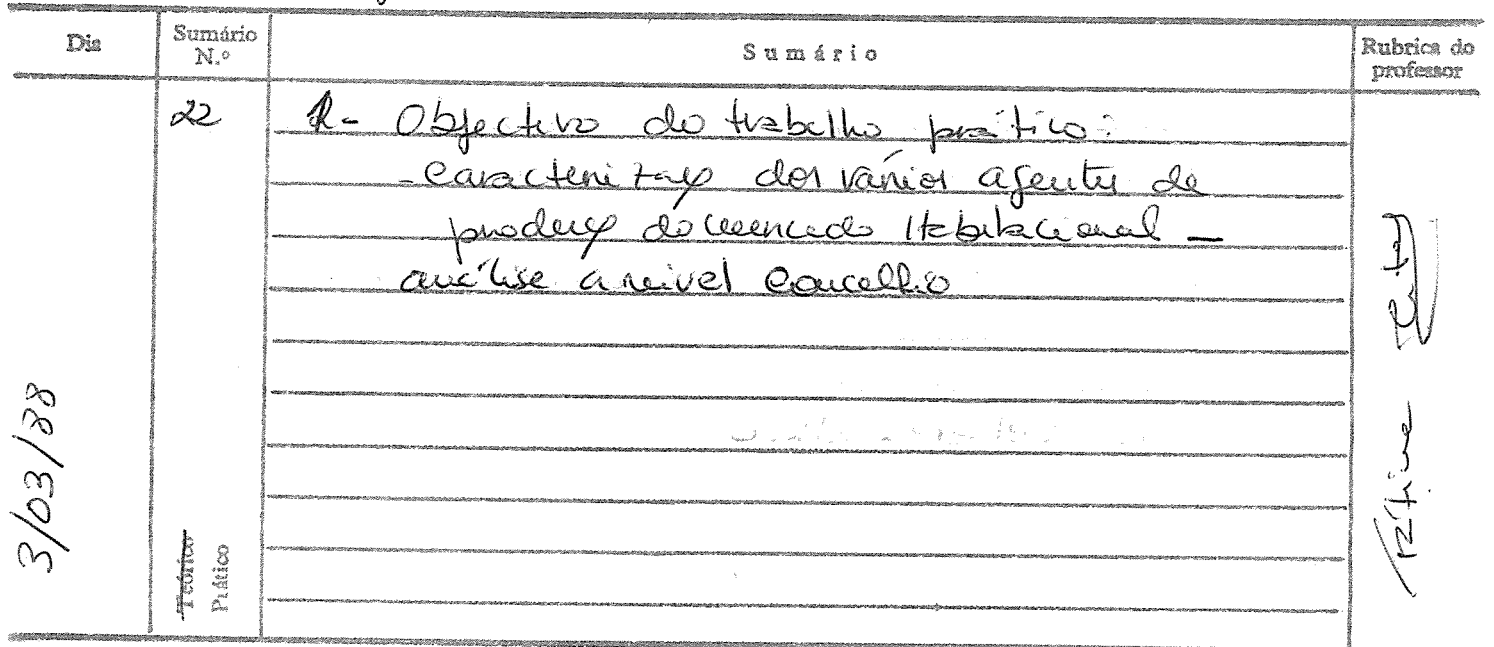 Dia
Sumário N.º
Sumário
Rubrica do professor
3/03/88
22
Teórico
Prático
1- Objectivo do trabalho prático:
- Caracterização dos vários agentes de
produção do mercado Habitacional —
análise a nível Concelhio